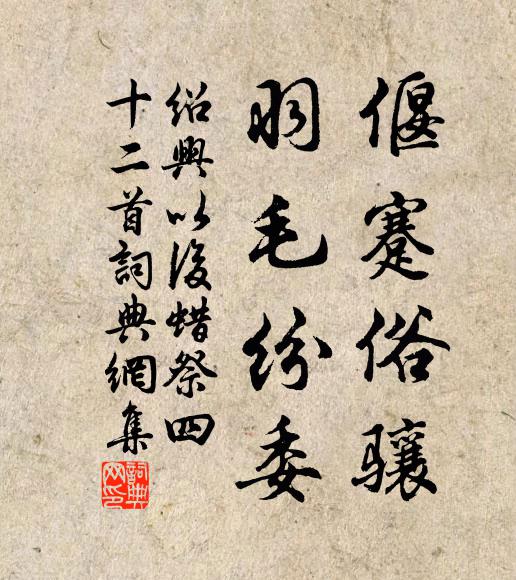 偃蹇俗骧
羽毛纷委
紹興以後蜡祭四
十二首詞典網集
詞典网印